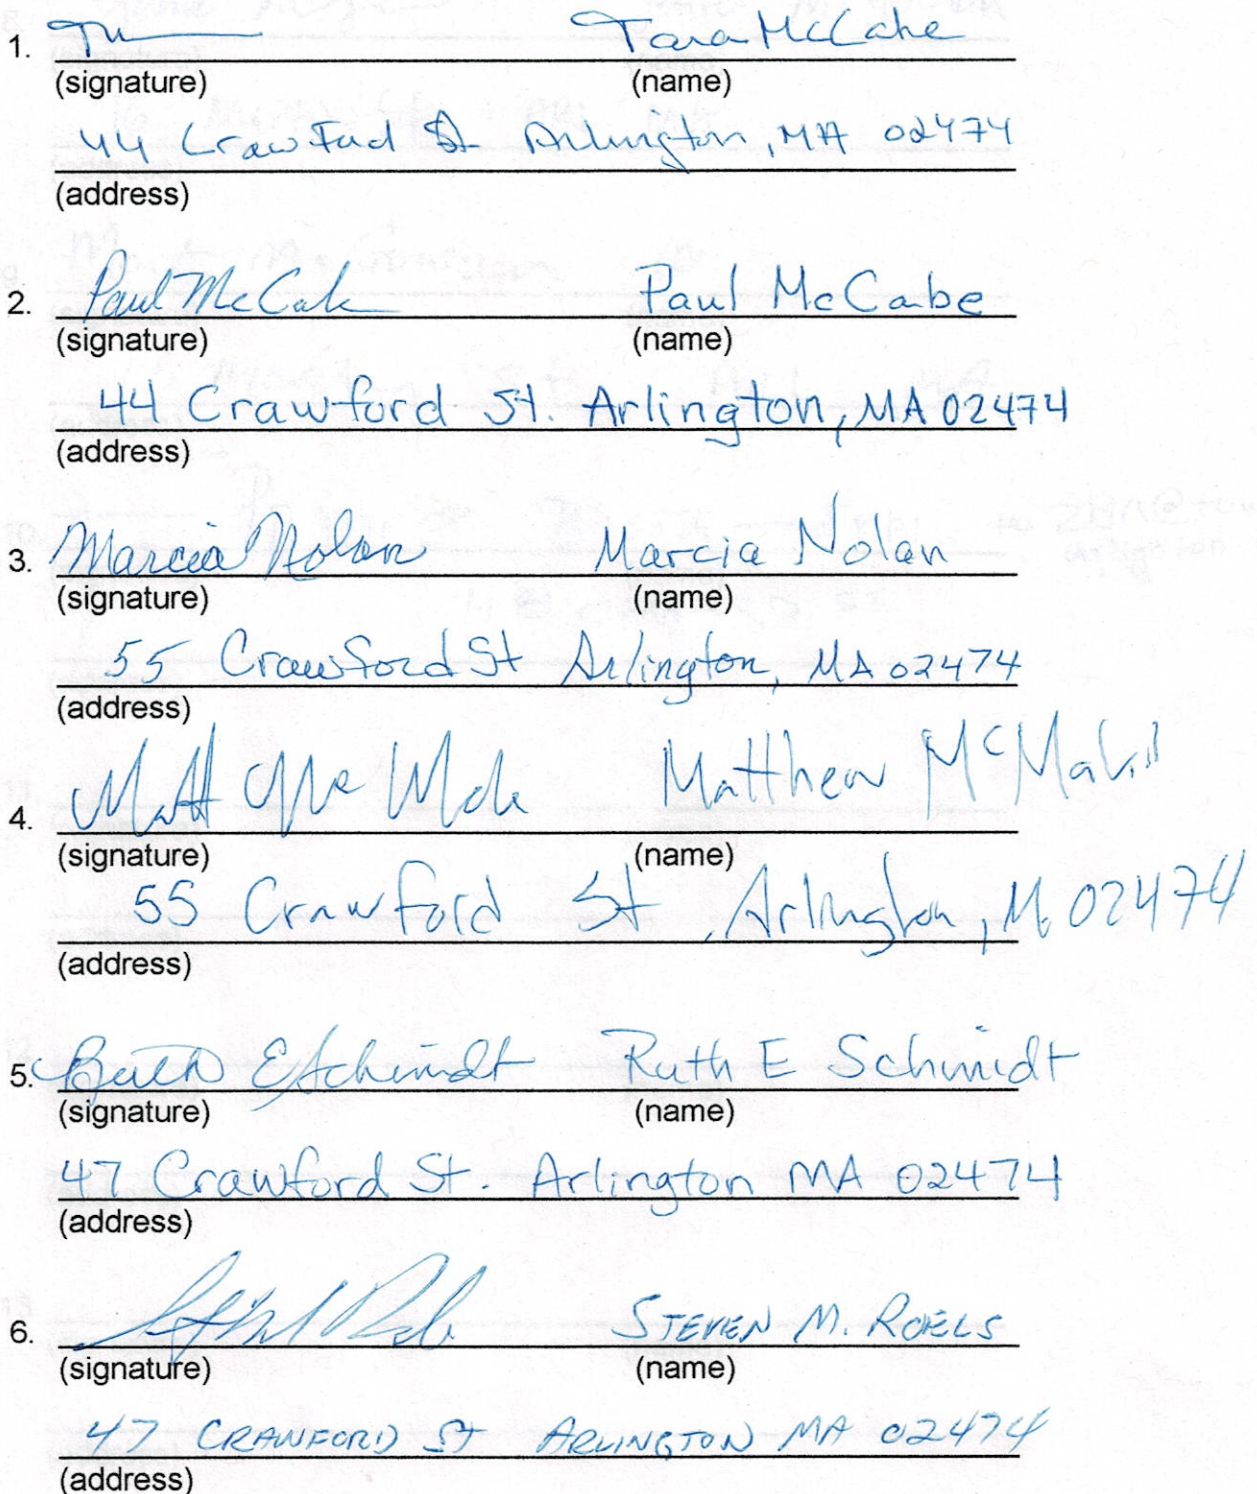 1. Tara McCabe
(signature) (name)
44 Crawford St Arlington, MA 02474
(address)
2. Paul McCabe Paul McCabe
(signature) (name)
44 Crawford St. Arlington, MA 02474
(address)
3. Marcia Nolan Marcia Nolan
(signature) (name)
55 Crawford St Arlington, MA 02474
(address)
4. Matt Matthew
(signature) (name)
55 Crawford St Arlington, M 02474
(address)
5. Ruth E Schmidt Ruth E Schmidt
(signature) (name)
47 Crawford St. Arlington MA 02474
(address)
6. STEVEN M. ROELS
(signature) (name)
47 CRAWFORD St ARLINGTON MA 02474
(address)